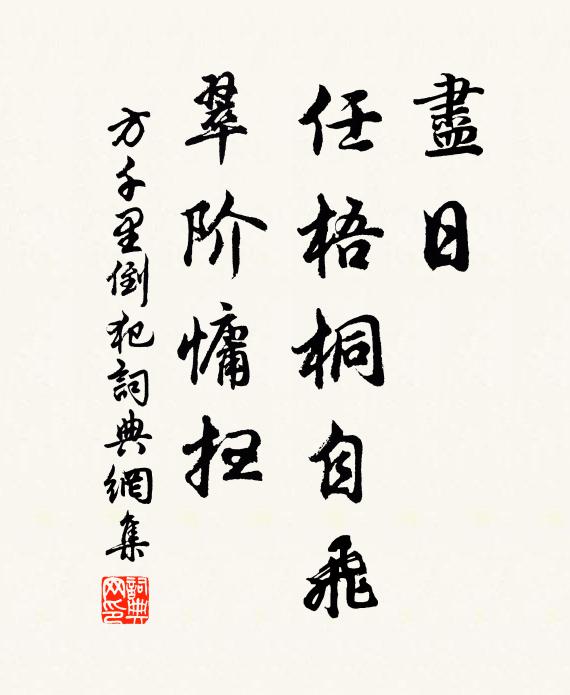 盡日
任梧桐自飛
翠阶慵扫
方千里倒犯詞典網集
詞典网印